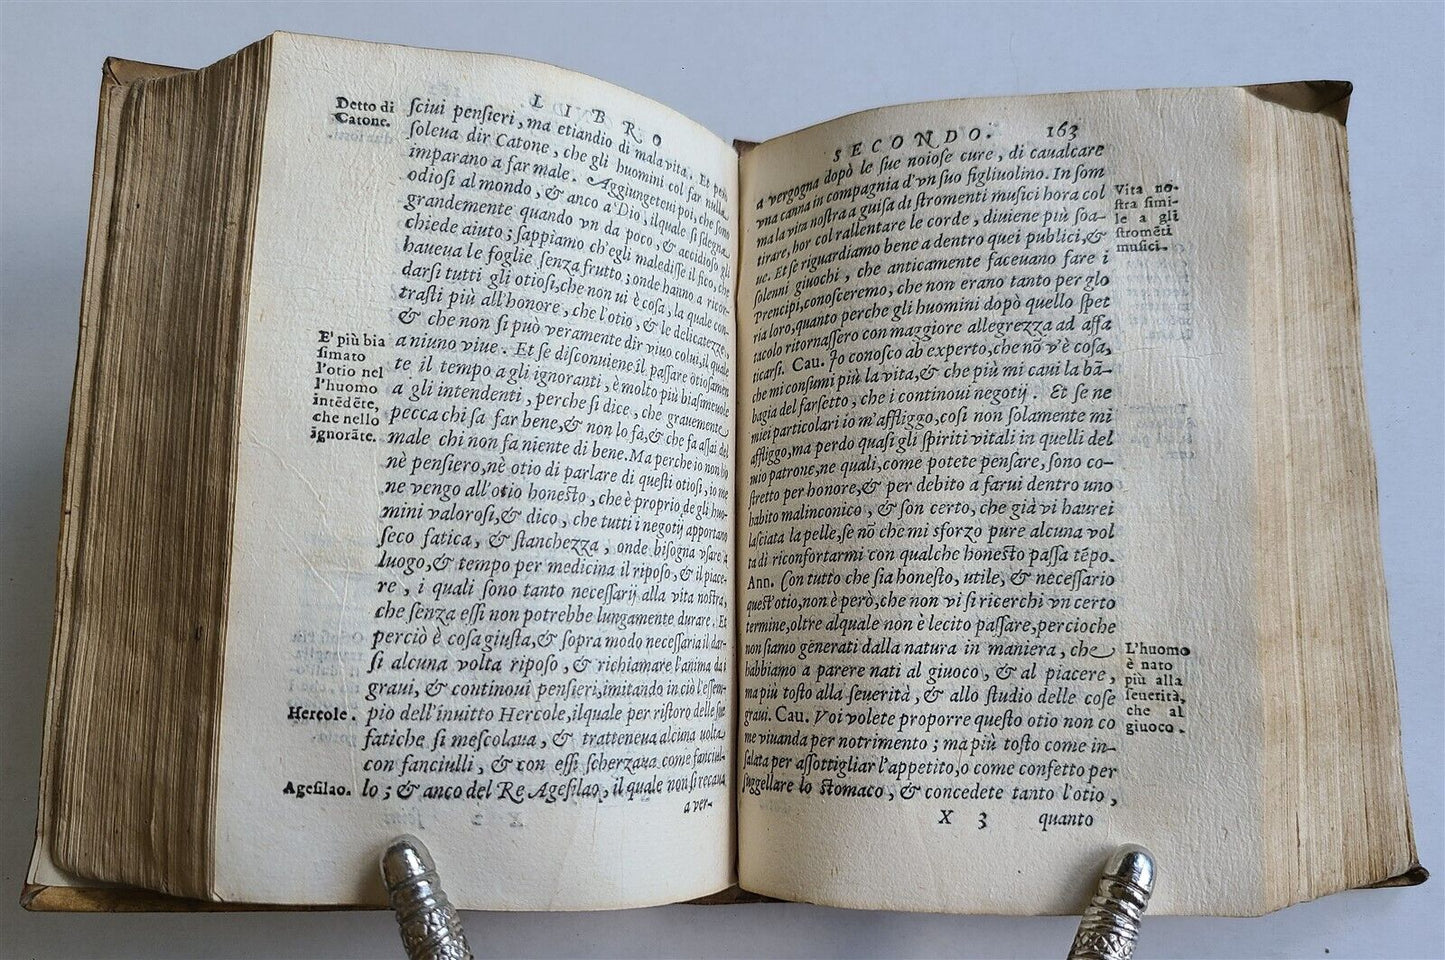 LIBRO
Detto di
Catone.
ſciui penſieri, ma etiandio di mala vita. Et però
ſoleua dir Catone, che gli huomini col far nulla
imparano a far male. Aggiungeteui poi, che ſono
odioſi al mondo, & anco a Dio, ilquale ſi ſdegna
grandemente quando vn da poco, & accidioſo gli
chiede aiuto; ſappiamo ch'egli malediſſe il fico, che
haueua le foglie ſenza frutto; onde hanno a ricor-
darſi tutti gli otioſi, che non ui è coſa, la quale con-
traſti più all'honore, che l'otio, & le delicatezze,
& che non ſi può veramente dir viuo colui, il quale
E' più bia
ſimato
l'otio nel
l'huomo
intēdēte,
che nello
ignorāte.
a niuno viue. Et ſe diſconuiene il paſſare otioſamen
te il tempo a gli ignoranti, è molto più biaſimeuole
a gli intendenti, perche ſi dice, che grauemente
pecca chi ſa far bene, & non lo fa, & che fa aſſai del
male chi non fa niente di bene. Ma perche io non hò
nè penſiero, nè otio di parlare di queſti otioſi, io me
ne vengo all'otio honeſto, che è proprio de gli huo-
mini valoroſi, & dico, che tutti i negotij apportano
ſeco fatica, & ſtanchezza, onde biſogna vſare a
luogo, & tempo per medicina il ripoſo, & il piace-
re, i quali ſono tanto neceſſarij alla vita noſtra,
che ſenza eſſi non potrebbe lungamente durare. Et
perciò è coſa giuſta, & ſopra modo neceſſaria il dar-
ſi alcuna volta ripoſo, & richiamare l'anima da i
graui, & continoui penſieri, imitando in ciò l'eſſem-
Hercole.
pio dell'inuitto Hercole, ilquale per riſtoro delle ſue
fatiche ſi meſcolaua, & tratteneua alcuna uolta
con fanciulli, & con eſſi ſcherzaua come fanciul-
Ageſilao.
lo; & anco del Re Ageſilao, il quale non ſi recaua
a ver-
SECONDO. 163
a vergogna dopò le ſue noioſe cure, di caualcare
vna canna in compagnia d'vn ſuo figliuolino. In ſom
Vita no-
ſtra ſimi-
le a gli
ſtromēti
muſici.
ma la vita noſtra a guiſa di ſtromenti muſici hora col
tirare, hor col rallentare le corde, diuiene più ſoa-
ue. Et ſe riguardiamo bene a dentro quei publici, &
ſolenni giuochi, che anticamente faceuano fare i
Prencipi, conoſceremo, che non erano tanto per glo
ria loro, quanto perche gli huomini dopò quello ſpet
tacolo ritornaſſero con maggiore allegrezza ad affa
ticarſi. Cau. Io conoſco ab experto, che nō v'è coſa,
che mi conſumi più la vita, & che più mi caui la bā-
bagia del farſetto, che i continoui negotij. Et ſe ne
miei particolari io m'affliggo, coſi non ſolamente mi
affliggo, ma perdo quaſi gli ſpiriti vitali in quelli del
mio patrone, ne quali, come potete penſare, ſono co-
ſtretto per honore, & per debito a farui dentro uno
habito malinconico, & ſon certo, che già vi haurei
laſciata la pelle, ſe nō che mi sforzo pure alcuna vol
ta di riconfortarmi con qualche honeſto paſſa tēpo.
Ann. Con tutto che ſia honeſto, utile, & neceſſario
queſt'otio, non è però, che non vi ſi ricerchi vn certo
termine, oltre alquale non è lecito paſſare, percioche
non ſiamo generati dalla natura in maniera, che
L'huomo
è nato
più alla
ſeuerità,
che al
giuoco.
habbiamo a parere nati al giuoco, & al piacere,
ma più toſto alla ſeuerità, & allo ſtudio delle coſe
graui. Cau. Voi volete proporre queſto otio non co
me viuanda per notrimento; ma più toſto come in-
ſalata per aſſottigliar l'appetito, o come confetto per
ſuggellare lo ſtomaco, & concedete tanto l'otio,
X 3 quanto